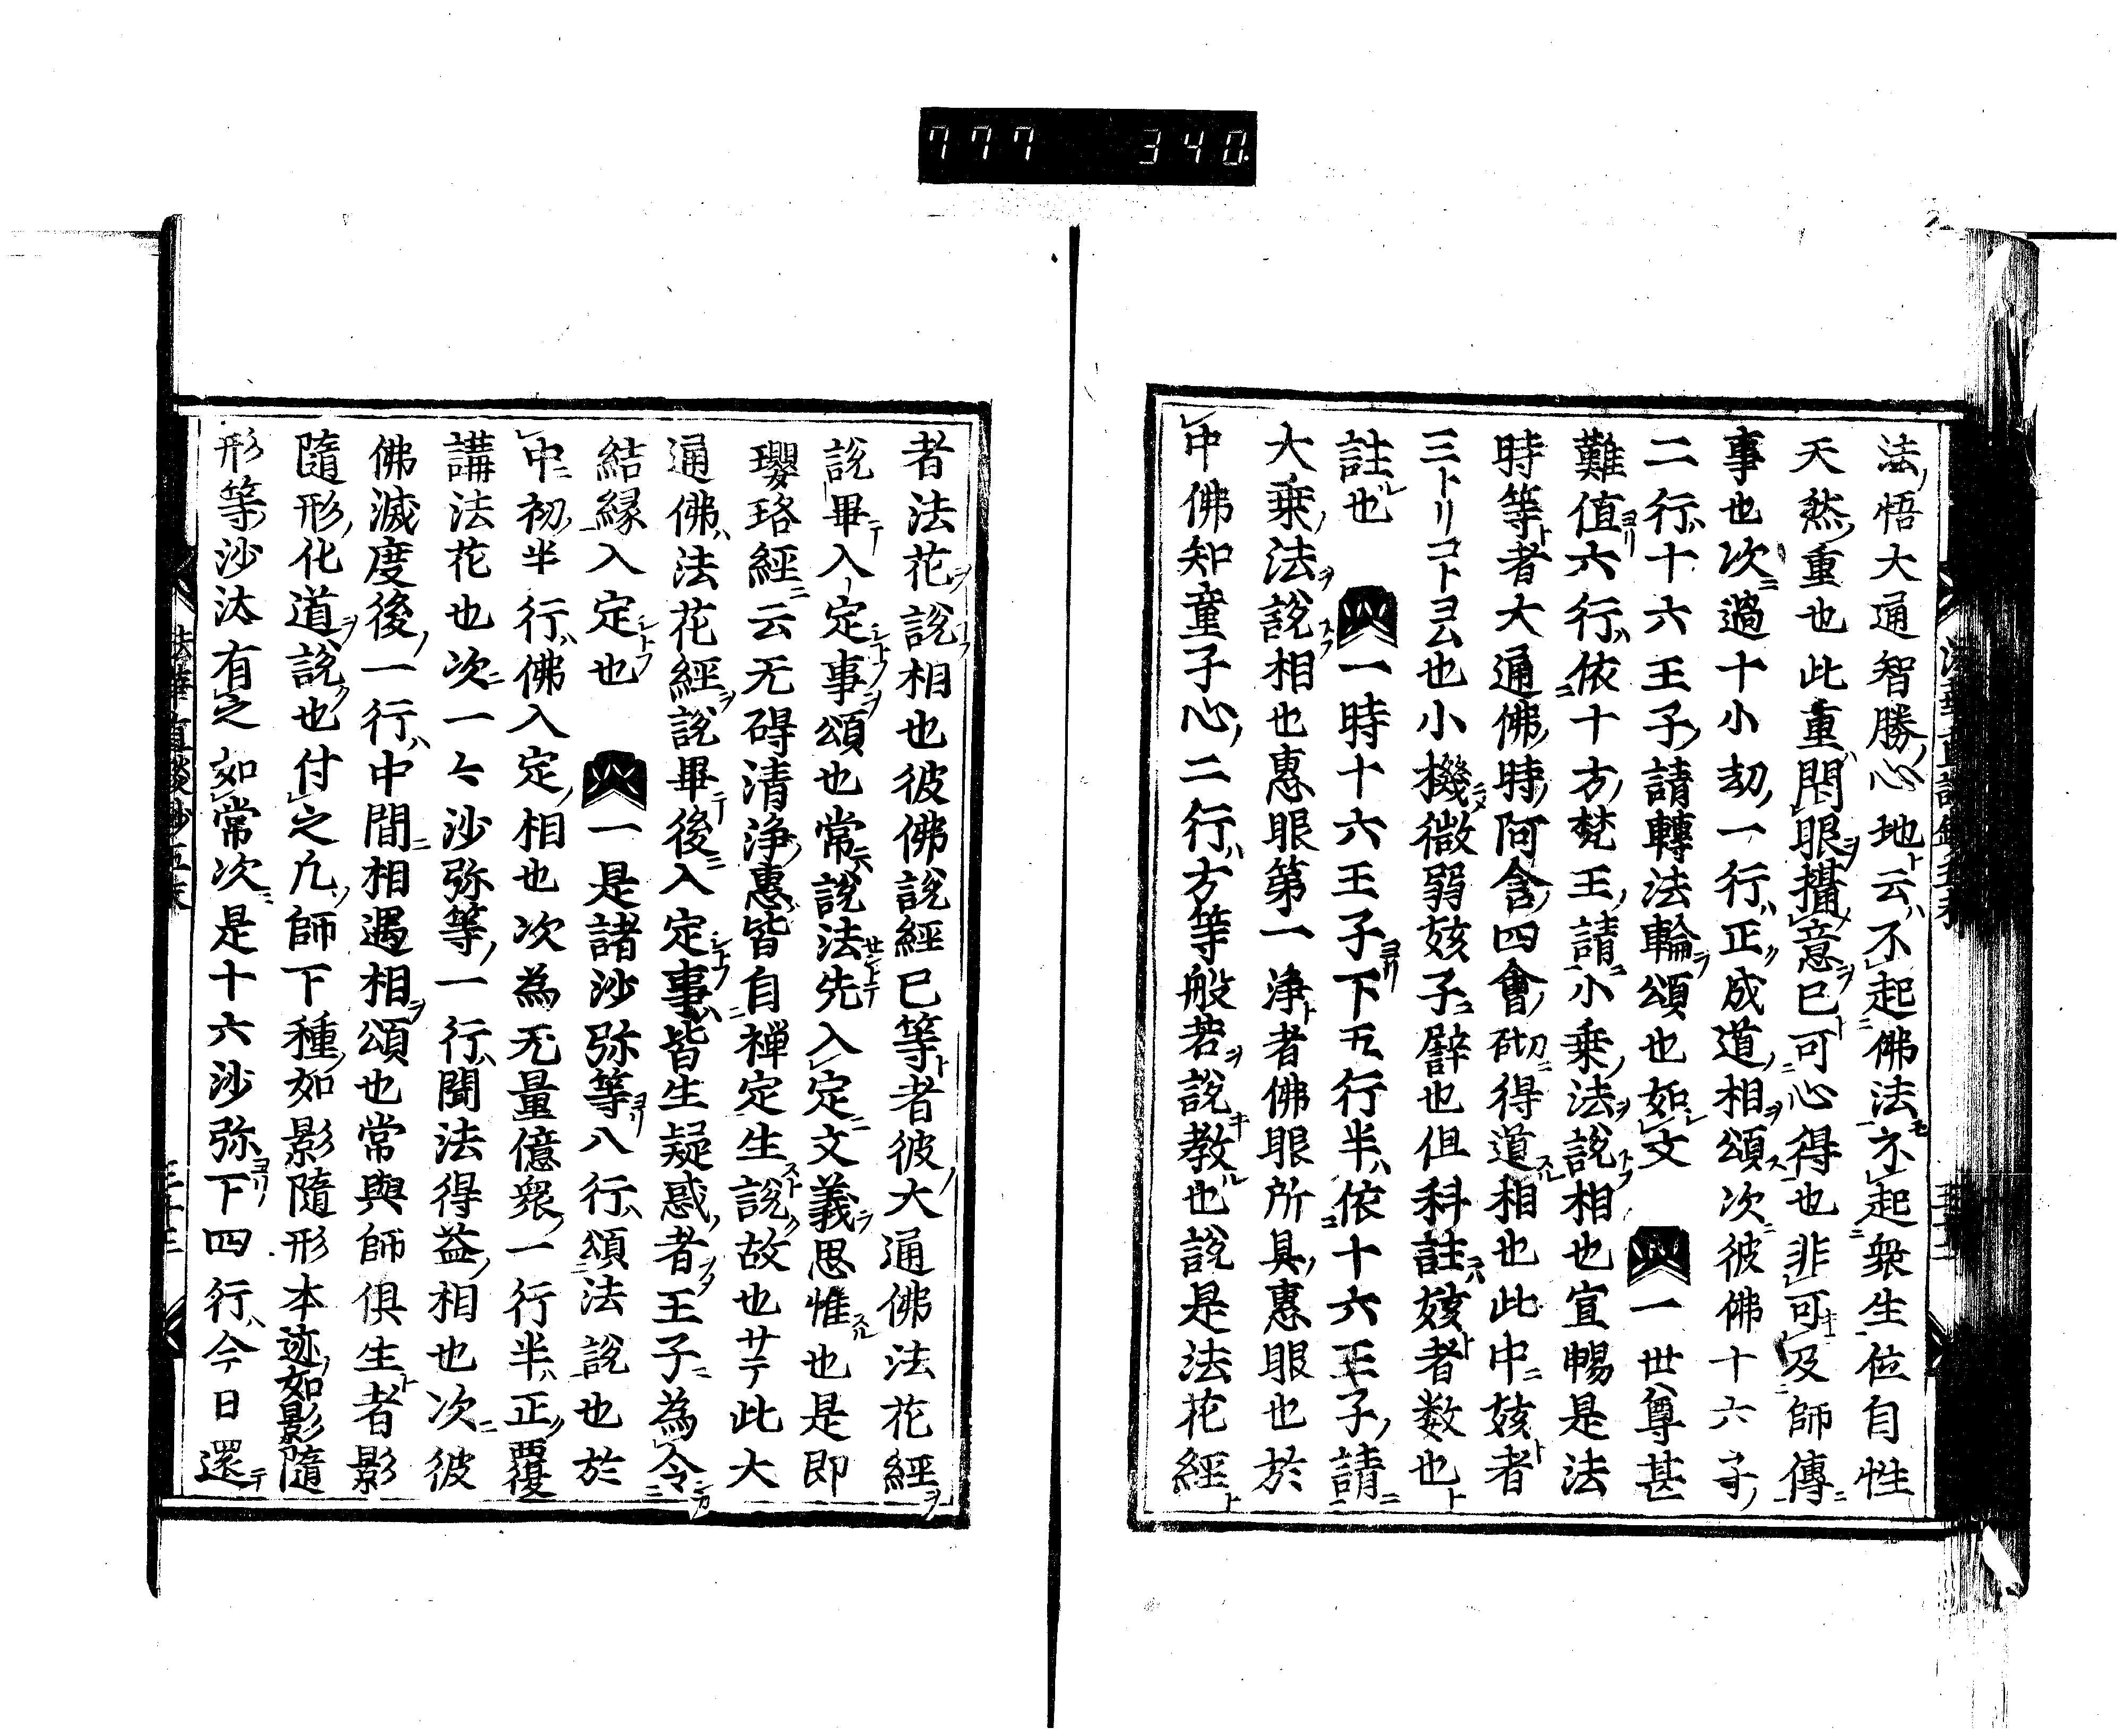 777 340
法悟大通智勝心地云不起佛法不起衆生位自性
天然重也此重閇眼攝意已可心得也非可及師傳
事也次過十小劫一行正成道相頌次彼佛十六子
二行十六王子請轉法輪頌也如文 一世尊甚
難值六行依十方梵王請小乗法説相也宣暢是法
時等者大通佛時阿含四會砌得道相也此中姟者
三トリコトヨム也小機微弱姟子譬也但科註姟者数也
註也 一時十六王子下五行半依十六王子請
大乗法説相也惠眼第一浄者佛眼所具惠眼也於
中佛知童子心二行方等般若説教也説是法花經
者法花説相也彼佛説經已等者彼大通佛法花經
説畢入定事頌也常説法先入定文義思惟也是即
瓔珞經云无碍清浄惠皆自禅定生説故也サテ此大
通佛法花經説畢後入定事皆生疑惑者王子為令
結縁入定也 一是諸沙弥等八行頌法説也於
中初半行佛入定相也次為无量億衆一行半正覆
講法花也次一々沙弥等一行聞法得益相也次彼
佛滅度後一行中間相遇相頌也常與師俱生者影
隨形化道説也付之凢師下種如影隨形本迹如影隨
形等沙汰有之如常次是十六沙弥下四行今日還
法華直談鈔五末 三十三